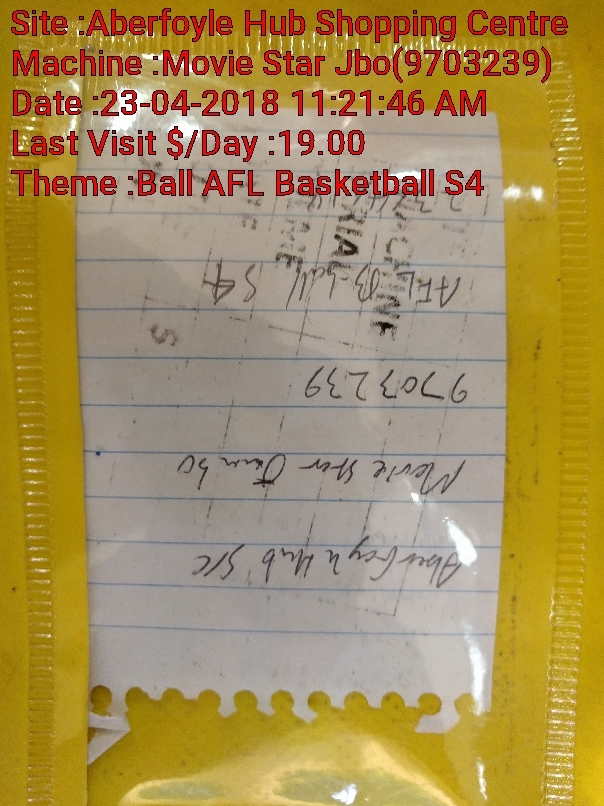 Site :Aberfoyle Hub Shopping Centre
Machine :Movie Star Jbo(9703239)
Date :23-04-2018 11:21:46 AM
Last Visit $/Day :19.00
Theme :Ball AFL Basketball S4
Aberfoyle Hub S/C
Movie Star Jumbo
9703239
AFL B ball S4
MACHINE